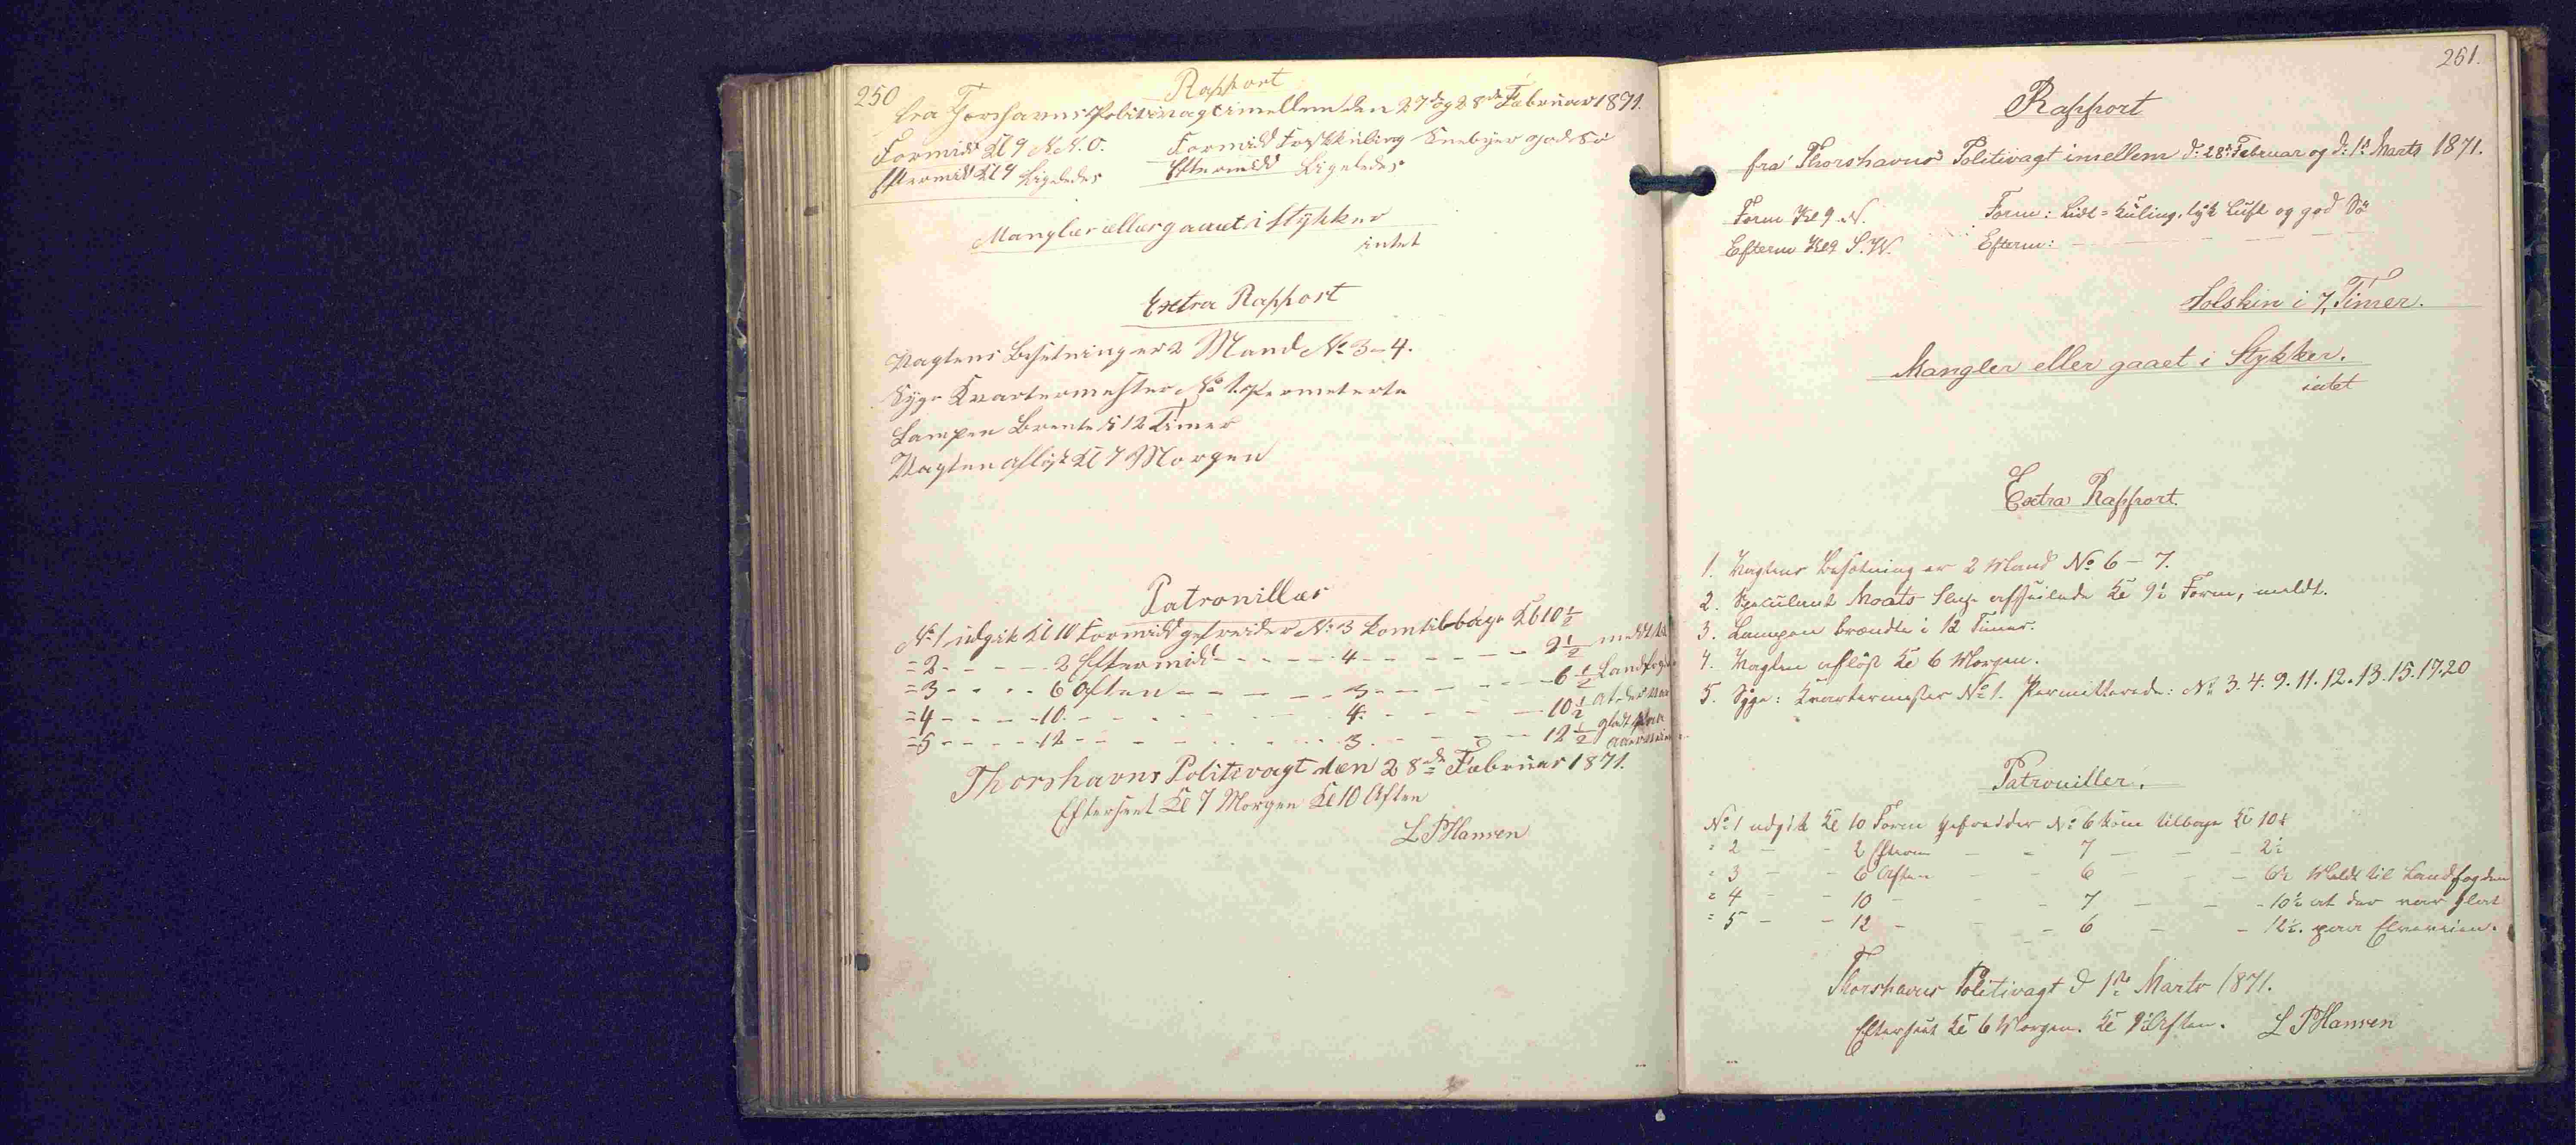 250
Rapport
fra Thorshavns Politivagt imellem den 27de og 28de Februar 1871.
Formidd Kl 9 N.N.O. Formidd Frisk Kuling Snebyer god Sö
Eftermidd Kl 9 Ligeledes Eftermidd Ligeledes
Mangler eller gaaet i Stykker
intet
Extra Rapport
Vagtens Besetning er 2 Mand No 3-4.
Syge Kvartermester No 1
Lampen Brente i 12 Timer
Vagten aflöst Kl 7 Morgen
Patrouiller
No 1 udgik Kl 10 Formidd gefreider No 3 kom tilbage Kl 10 1/2
= 2 - - - - 2 Eftermidd - - - - 4 - - - - 2 1/2 meldt til
= 3 - - - - 6 Aften - - - - 3 - - - - 6 1/2 Landfog
= 4 - - - - 10 - - - - 4 - - - - 10 1/2 at der var
= 5 - - - - 12 - - - - 3 - - - - 12 1/2 glat paa
Thorshavns Politivagt den 28de Februar 1871.
Efterseet Kl 7 Morgen Kl 10 Aften
L P Hansen
251.
Rapport
fra Thorshavns Politivagt imellem d: 28d Februar og d: 1ste Marts 1871.
Form Kl 9 N. Form: Lidt = Kuling, tyk Luft og god Sö
Efterm Kl 9 S.W. Efterm: - - - - -
Solskin i 7, Timer.
Mangler eller gaaet i Stykker.
intet
Extra Rapport.
1. Vagtens Besætning er 2 Mand No 6 - 7.
2. Speculant Moats Slup afseilede Kl 9 1/2 Form, meldt.
3. Lampen brændte i 12 Timer.
4. Vagten aflöst Kl 6 Morgen.
5. Syge: Kvartermester No 1. Permitterede: No 3. 4. 9. 11. 12. 13. 15. 17. 20
Patrouiller.
No 1 udgik Kl 10 Form gefreider No 6 kom tilbage Kl 10 1/2
= 2 - - 2 Efterm - - 7 - - - 2 1/2
= 3 - - 6 Aften - - 6 - - - 6 1/2 Meldt til Landfogden
= 4 - - 10 - - 7 - - - 10 1/2 at der var glat
= 5 - - 12 - - 6 - - 12 1/2. paa Elveveien.
Thorshavns Politivagt d 1ste Marts 1871.
Efterseet Kl 6 Morgen. Kl 9 1/2 Aften. L P Hansen